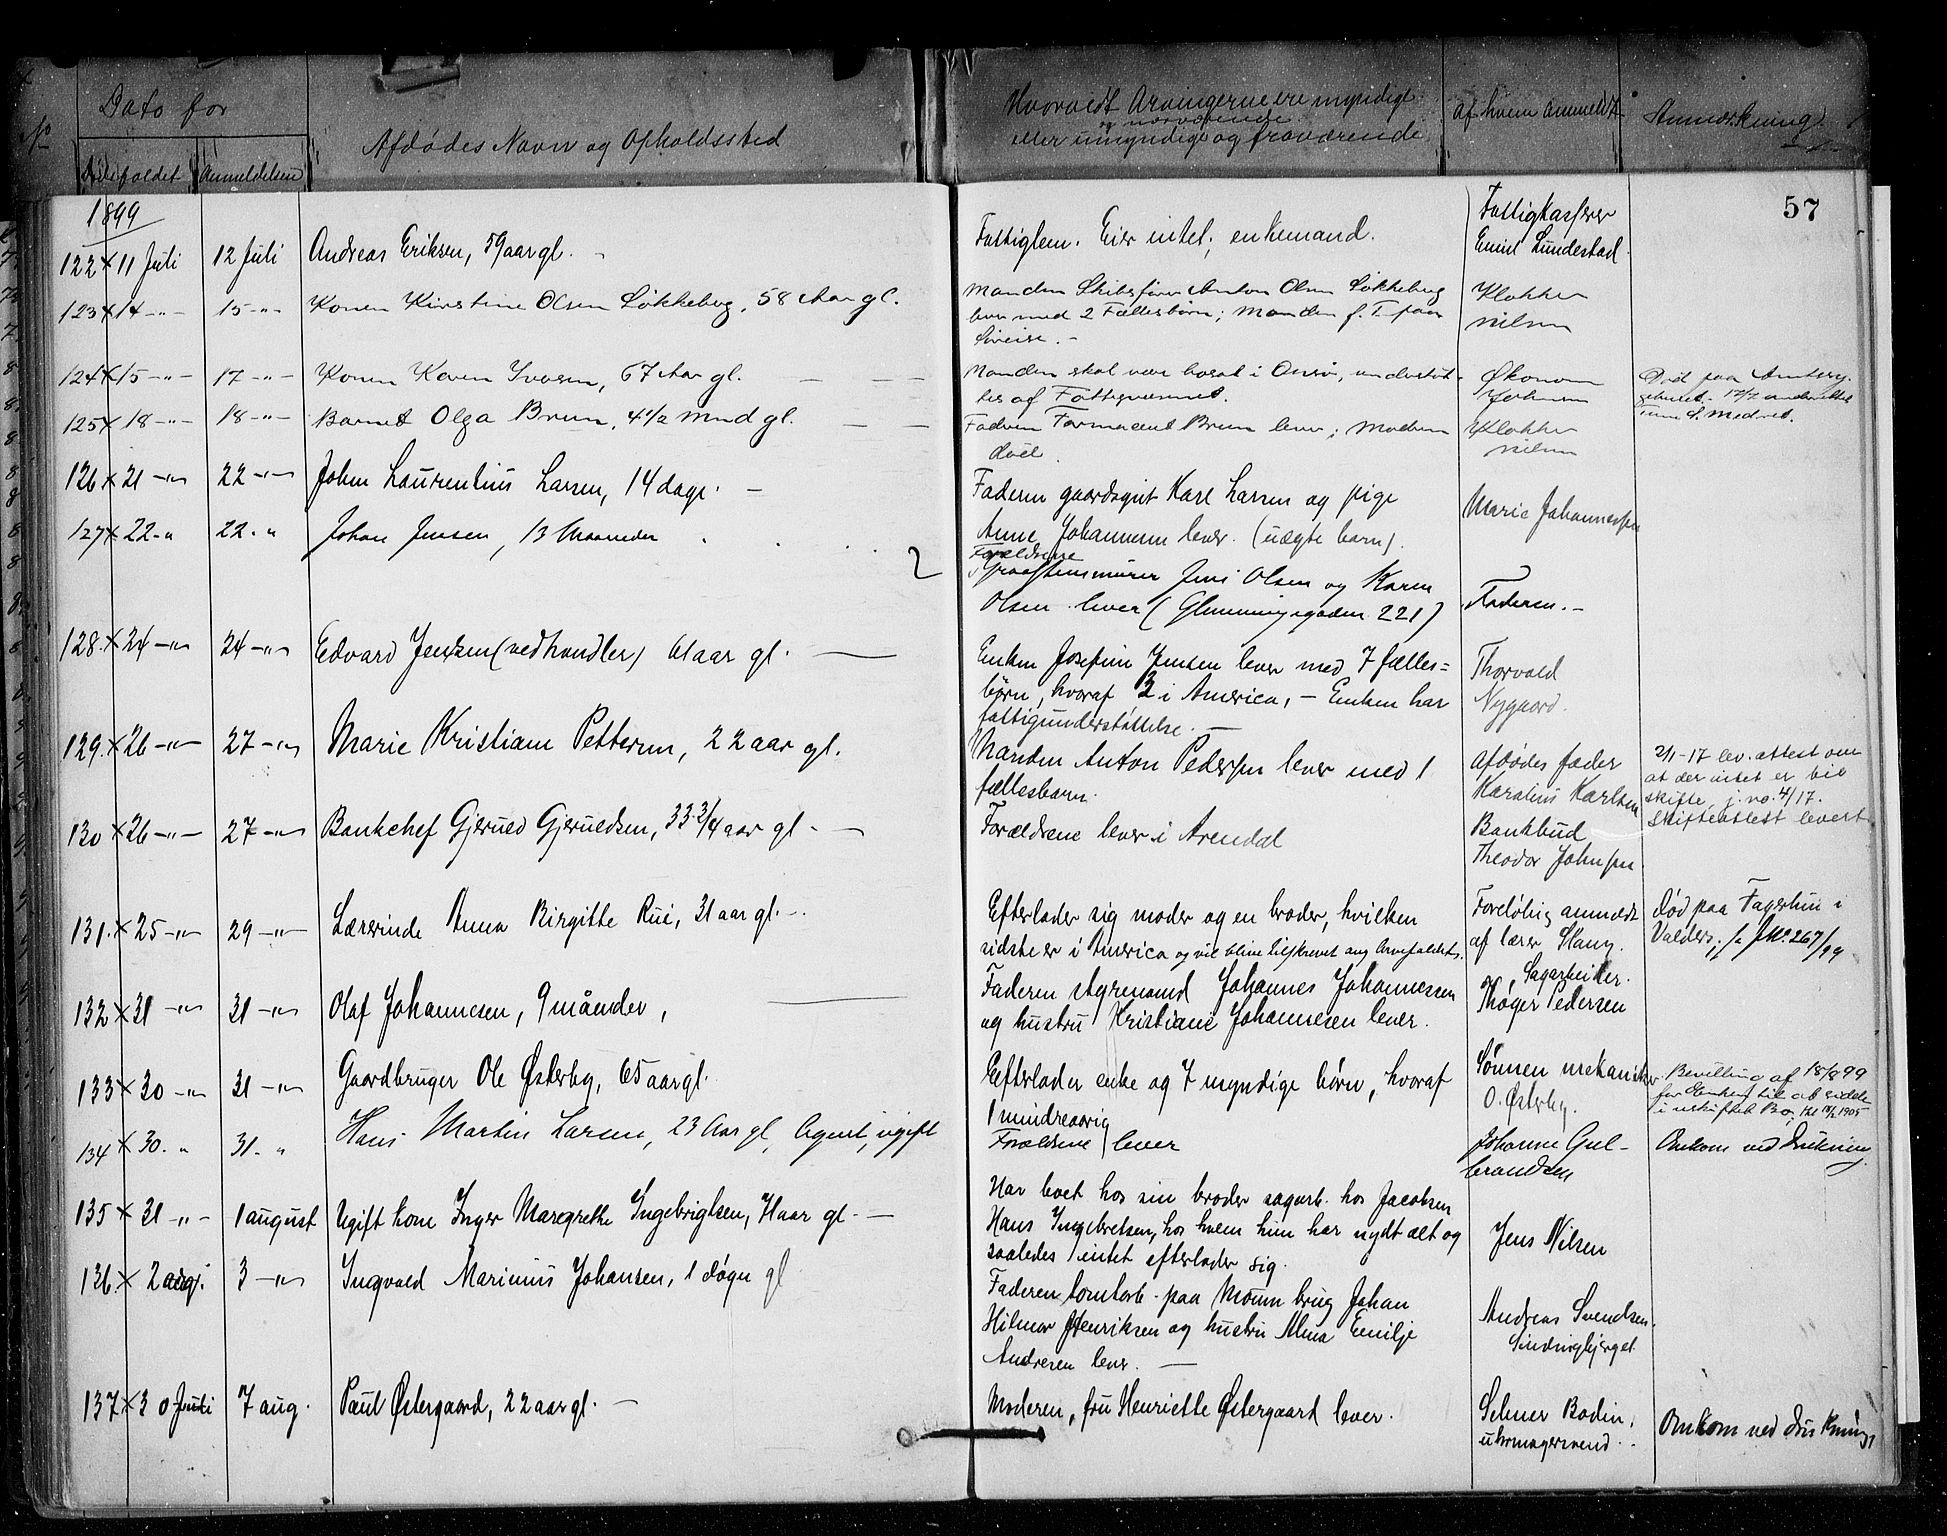 No
Dato for
Dødsfaldet
Anmeldelsen
Afdødes Navn og Opholdssted
Hvorvidt Arvingerne ere myndige
og nærværende
eller umyndige og fraværende
Af hvem anmeldt
Anmærkning
57
1899
122 x 11 Juli 12 Juli Andreas Eriksen, 59 aar gl.
Fattiglem. Eier intet; enkemand.
Fattigkasserer
Emil Lundestad.
123 x 14 -"- 15 -"- Konen Kirstine Olsen Løkkeberg, 58 Aar gl.
Manden Skibsfører Anton Olsen Løkkeberg
lever med 2 Fællesbørn; Manden f. T. paa
Søreise. -
Klokker
Nilsen
124 x 15 -"- 17 -"- Konen Karen Iversen, 67 Aar gl.
Manden skal være bosat i Onsø, understøt-
tes af Fattigvæsenet.
Økonom
Johnsen
Død paa Amtssyge-
huset.
125 x 18 -"- 18 -"- Barnet Olga Brun, 4 1/2 Mnd gl.
Faderen Farmaceut Brun lever; Moderen
død.
Klokker
Nilsen
126 x 21 -"- 22 -"- John Laurentius Larsen, 14 dage. -
Faderen gaardsgut Karl Larsen og pige
Anne Johannesen lever. (uægte barn).
Marie Johannessen
127 x 22 -" 22. " Johan Jensen, 13 Maaneder
2
Forældrene
Graastensmurer Jens Olsen og Karen
Olsen lever (Glemmingegaden 221)
Faderen. -
128. x 24 -"- 24 -"- Edvard Jensen (vedhandler) 61 aar gl.
Enken Josefine Jensen lever med 7 fælles=
børn, hvoraf 3 i America, - Enken har
fattigunderstøttelse. -
Thorvald
Nygaard.
129. x 26 -"- 27 -"- Marie Kristiane Pettersen, 22 aar gl.
Manden Anton Pederssen lever med 1
fællesbarn.
Afdødes fader
Karelius Karlsen
2/1-17 lev. attest om
at der intet er bie
skifte, j. no. 4/17.
Skifteattest levert
130 x 26 -"- 27 -"- Bankchef Gjerued Gjeruldsen, 33 3/4 aar gl. -
Forældrene lever i Arendal
Bankbud
Theodor Johnssen
131. x 25 -"- 29 -"- Lærerinde Anna Birgitte Rui, 31 aar gl. -
Efterlader sig moder og en broder, hvilken
sidste er i America og vil blive tilskrevet ang. Arvefaldet.
Foreløbig anmeldt
af lærer Stang.
Død paa Fagerlun i
Valders; J.No. 267/99
132 x 31 -"- 31 -"- Olaf Johannesen, 9 månder,
Faderen Styrmand Johannes Johannessen
og hustru Kristiane Johannesen lever.
Sagarbeider.
Thøger Pedersen
133 x 30 -"- 31 -"- Gaardbruger Ole Østerby, 65 aar gl.
Efterlader enke og 7 myndige børn, hvoraf
1 mindreaarig
Sønnen mekaniker
O. Østerby.
Bevilling af 18/8 99
for Enken til at sidde
i uskiftet Bo,
134 x 30. " 31. " Hans Martin Larsen, 23 Aar gl, Agent, ugift
Forældrene lever
Johanne Gul-
brandsen
Omkom ved drukning
135 x 31 -"- 1 august Ugift kone Inger Margrethe Ingebrigtsen, 71 aar gl. -
Har boet hos sin broder sagarb. hos Jacobsen
Hans Ingebretsen, hos hvem hun har nydt alt og
saaledes intet efterlader sig.
Jens Nilsen
136. x 2 aug. 3 -"- Ingvald Marinius Johansen, 1 døgn gl
Faderen tomtarb. paa Moum brug Johan
Hilmar Henriksen og hustru Alma Emilje
Andresen lever. -
Andreas Svendsen.
Sindingbjerget
137 x 30 Juli 7 aug. Paul Østergaard, 22 aar gl. -
Moderen, fru Henriette Østergaard lever.
Selmer Bodin,
uhrmagersvend.
Omkom ved drukning